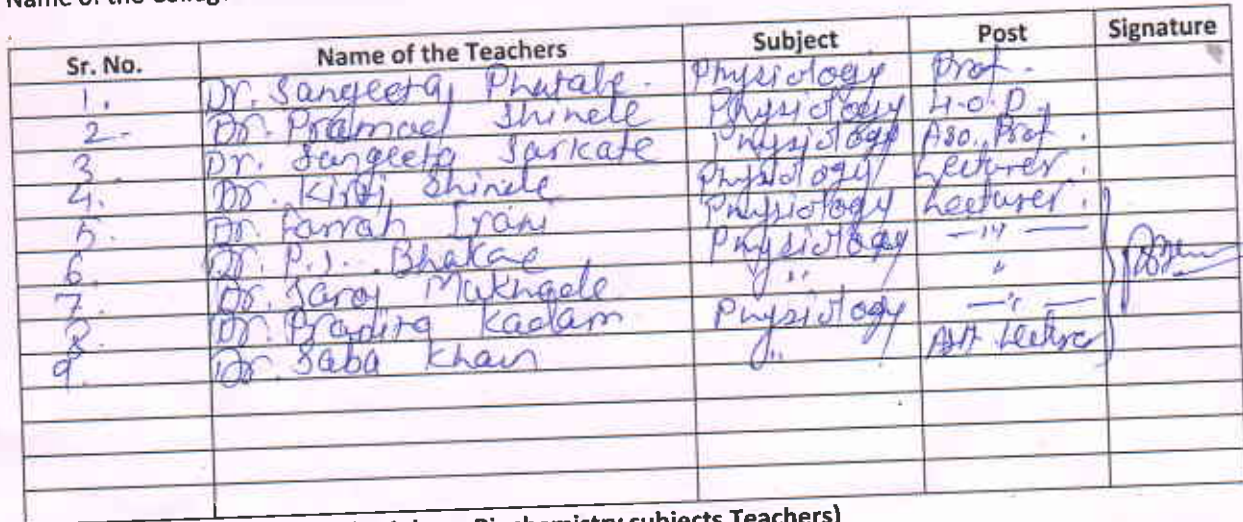 Name of the
Sr. No. Name of the Teachers Subject Post Signature
1. Dr. Sangeeta Phatale. Physiology Prof.
2. Dr. Pramod Shinde Physiology H.O.D.
3. Dr. Sangeeta Sarkate Physiology Aso. Prof.
4. Dr. Kirti Shinde Physiology Lecturer.
5. Dr. Farrah Irani Physiology Lecturer.
6. Dr. P.J. Bhakae Physiology —"—
7. Dr. Saroj " "
8. Dr. Kadam Physiology —"—
9. Dr. Saba Khan " Lecturer
Biochemistry subjects Teachers)